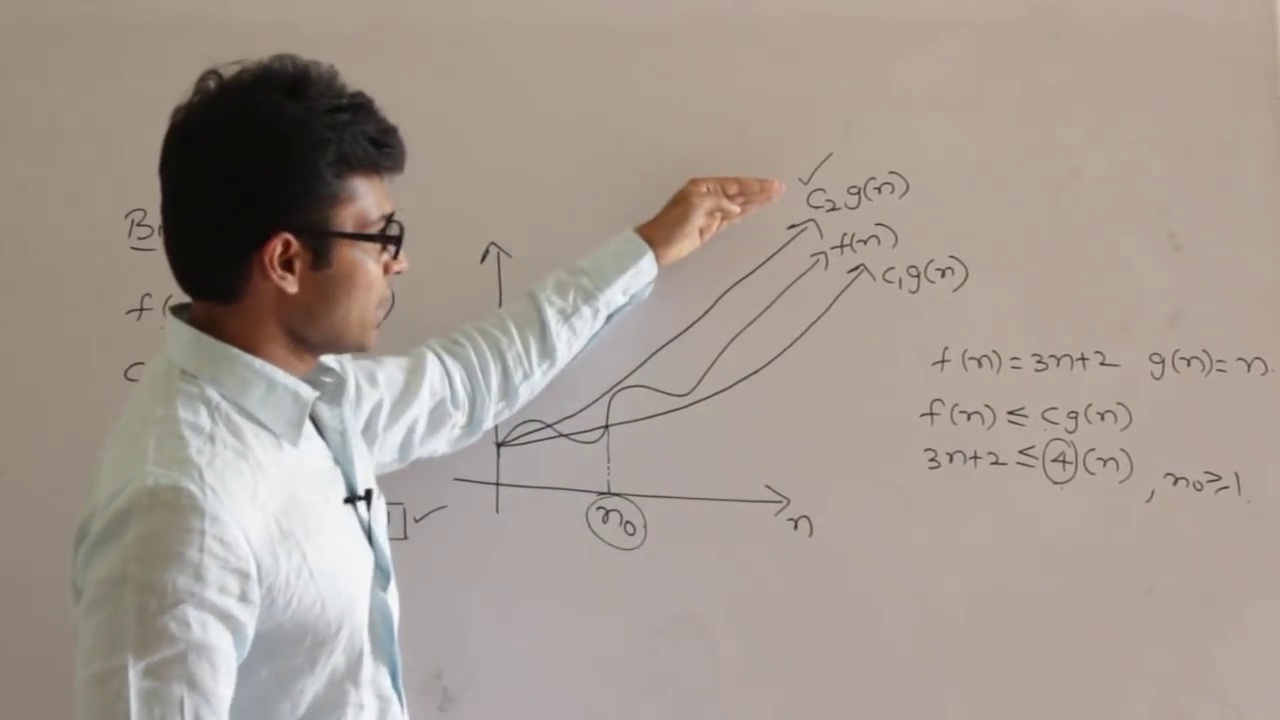 c₂g(n)
f(n)
c₁g(n)
n₀
n
f(n) = 3n+2 g(n) = n.
f(n) ≤ cg(n)
3n+2 ≤ 4(n) , n₀ ≥ 1.